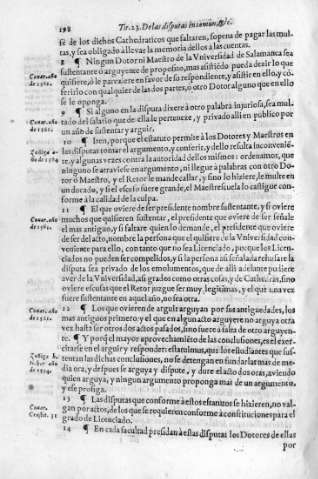 198 Tit. 23. De las disputas
se de los dichos Cathedraticos que faltaren, so pena de pagar las multas, y sea obligado a llevar la memoria dellos a las cuentas.
8 ¶ Ningun Dotor ni Maestro de la Vniversidad de Salamanca sea
sustentante o arguyente de proposito, mas assistiendo pueda dezir lo que
quisiere, ò le pareciere en favor de su respondiente, y assistir en ello, y
ferirlo con qualquier de las dos partes, ò otro Dotor alguno que en ello
se le oponga.
9 ¶ Si alguno en la disputa dixere à otro palabra injuriosa, sea
tado del salario que de ella le perteneze, y privado alli en publico por
un año de sustentar y arguir.
10 ¶ Iten, porque el estatuto permite à los Dotores y Maestros en
las disputas tomar el argumento, y conferir, y dello resulta inconvenie
te, y algunas vezes contra la autoridad dellos mismos: ordenamos, que
ninguno se atraviesse en argumento, ni llegue à palabras con otro Do
tor ò Maestro, y el Retor le mande callar, y sino lo hiziere, le multe en
un dorado, y si el exceso fuere grande, el Maestrescuela lo castigue con
forme à la calidad de la culpa.
11 ¶ El que oviere de ser presidente nombre sustentante, y si oviere
muchos que quisieren sustentar, el presidente que oviere de ser señale
el mas antiguo, y si faltare quien lo demande, el presidente que oviere
de ser del acto, nombre la persona que el quisiere de la Vniversidad con
veniente para ello, con tanto que no sea Licenciado, porque los Licen
ciados no pueden ser compelidos, y si la persona assi señalada rehusare la
disputa sea privado de los emolumentos, que de alli adelante pudiere
aver de la Vniversidad, assi grados como otras cosas, y de Cathedras, sino
oviere escusas que el Retor juzgue ser muy legitimas, y el que una vez
fuere sustentante en aquel año, no sea otra.
12 ¶ Los que ovieren de arguir arguyan por sus antiguedades, los
mas antiguos primero: y el que en algun acto arguyere no arguya otra
vez hasta ser otros dos actos pasados, sino fuere à falta de otro arguyen
te. ¶ Y porq̃ el mayor aprovechamiẽto de las conclusiones, es el exer
citarse en el arguir y responder: estatuimus, que los estudiantes que sus
tentan las dichas conclusiones, no se detengan en fundarlas mas de me
dia ora, y despues se arguya y dispute, y dure el acto dos oras, aviendo
quien arguya, y ningun argumento proponga mas de un argumento,
y ese prosiga.
13 ¶ Las disputas que conforme à estos estatutos se hizieren, no val
gan por actos, de los que se requieren conforme à constituciones para el
grado de Licenciado.
14 ¶ En cada facultad presidan à estas disputas los Dotores de ellas
por